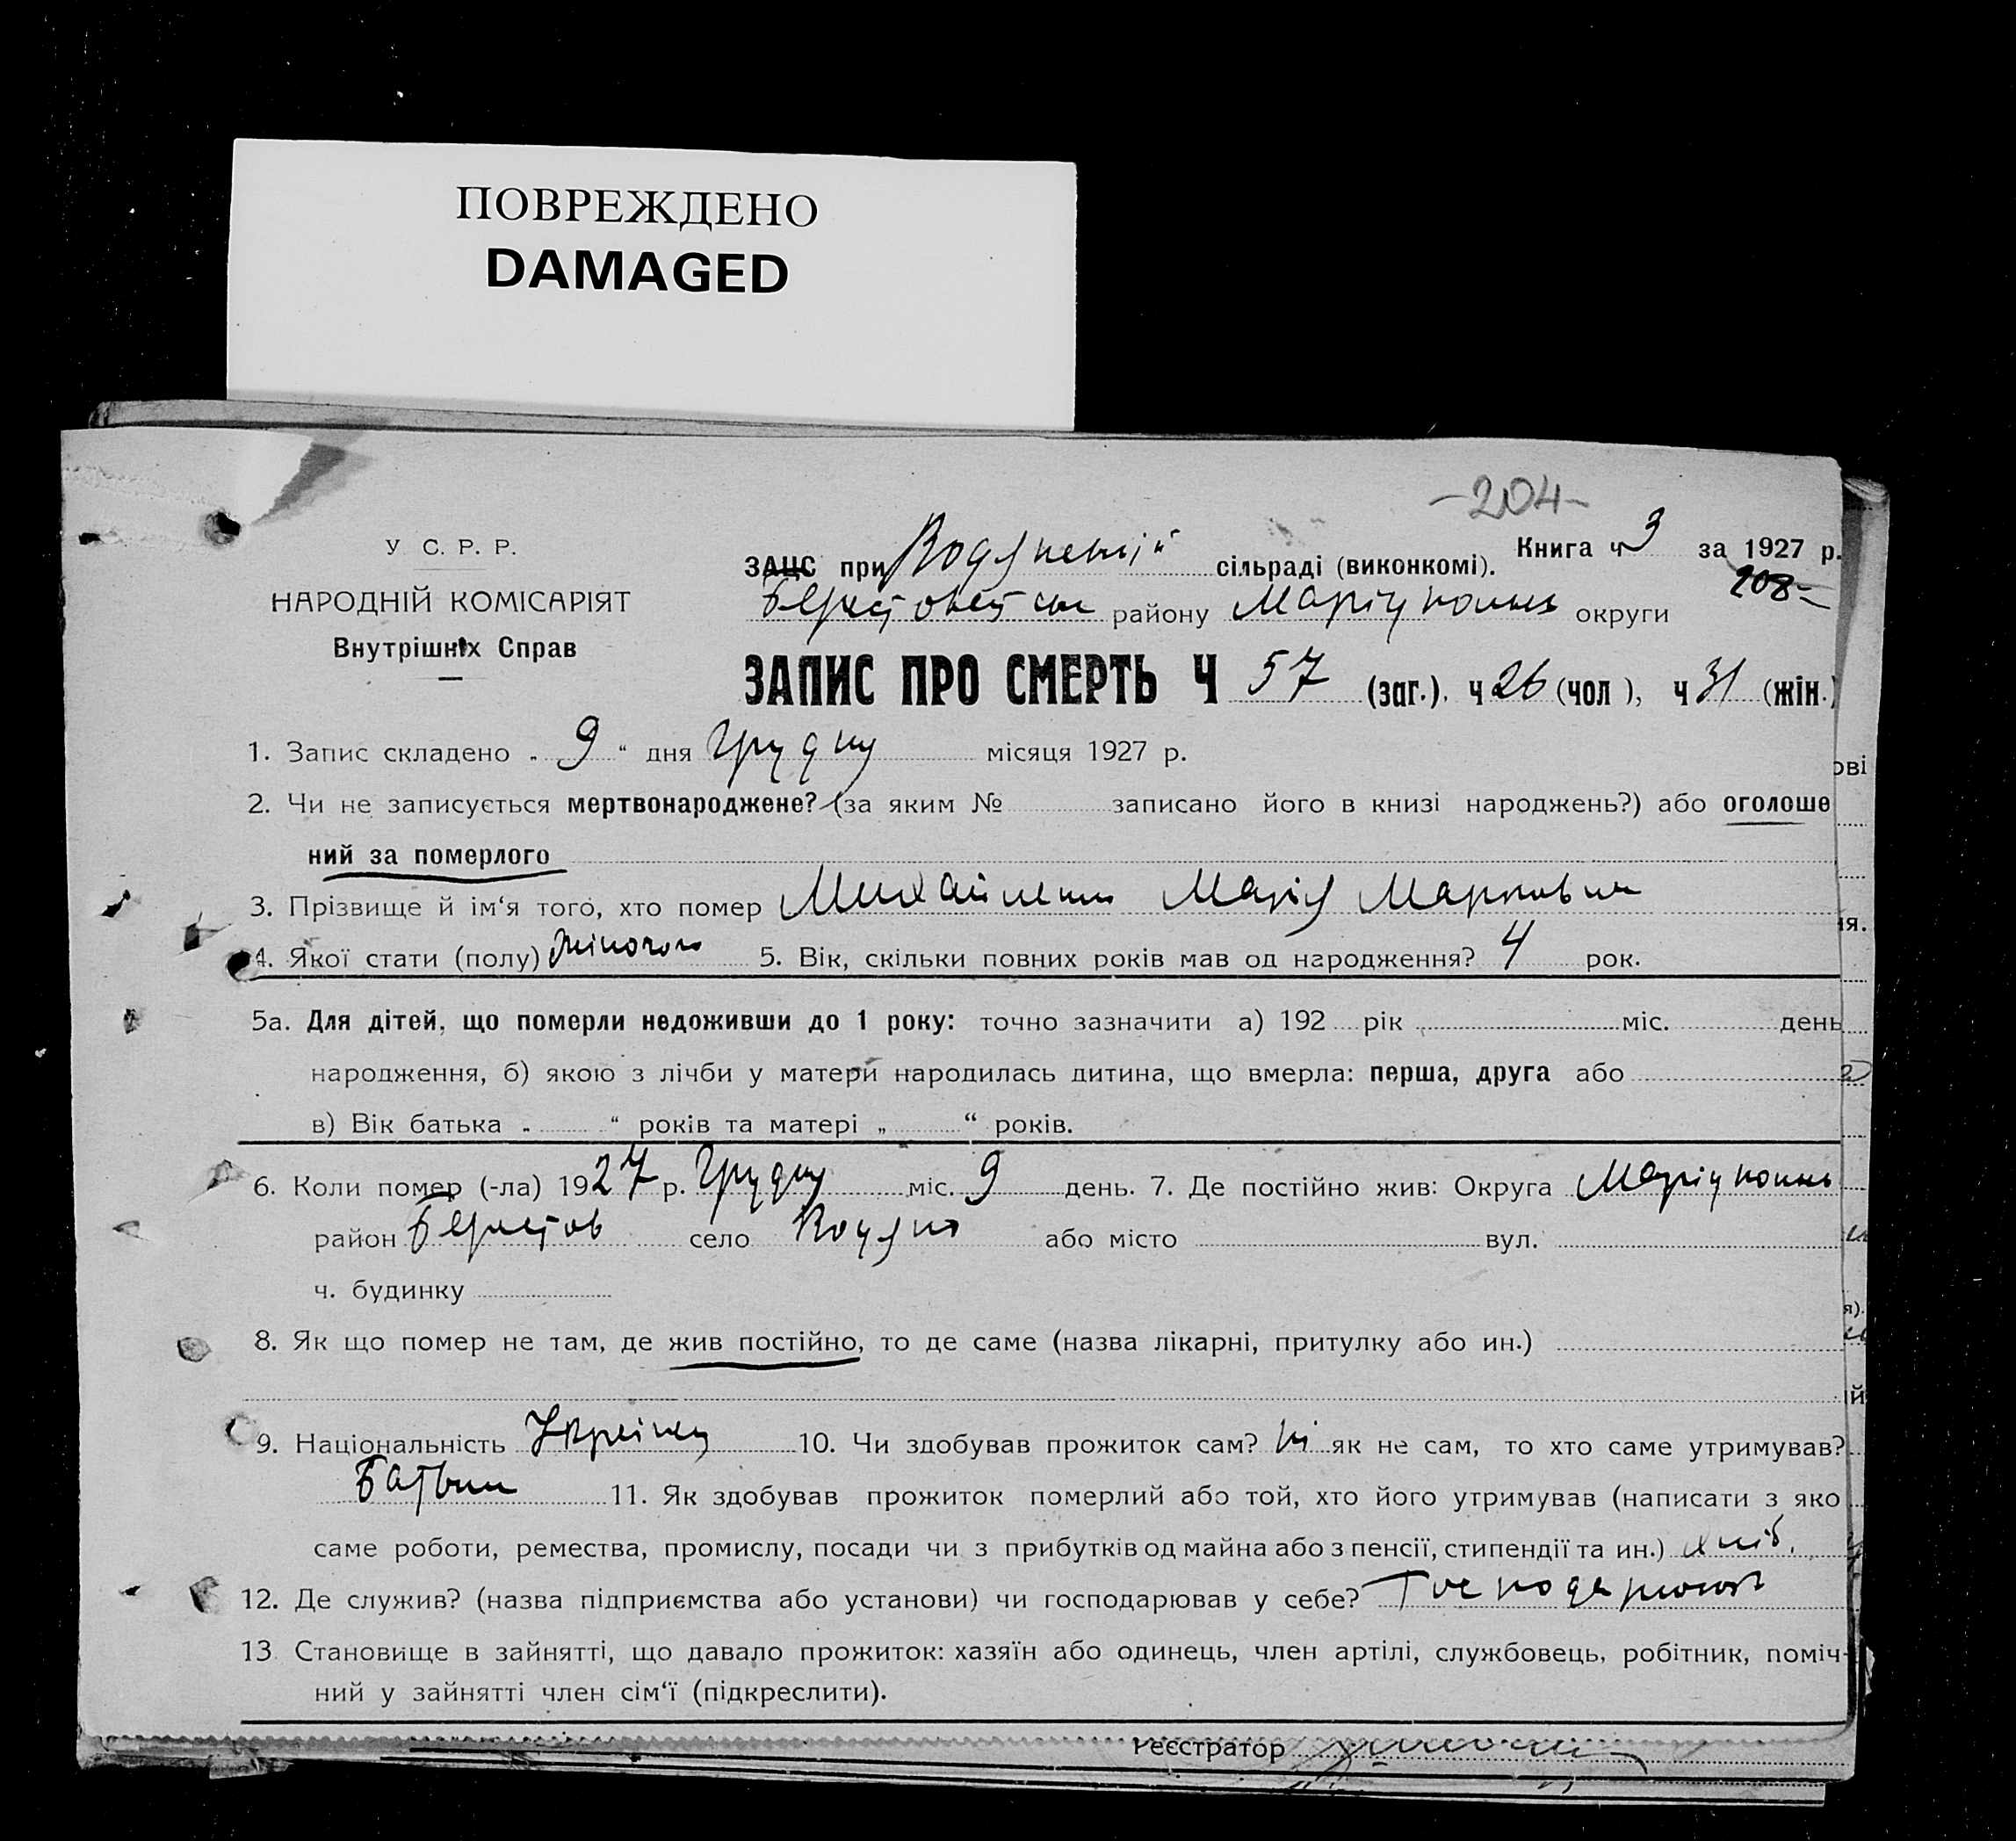 ПОВРЕЖДЕНО
DAMAGED
-204-
У С. Р. Р.
НАРОДНІЙ КОМІСАРІЯТ
Внутрішніх Справ
Книга ч 3 за 1927 р.
ЗАЦС при Водяненській сільраді (виконкомі).
208-
району Маріуполь округи
ЗАПИС ПРО СМЕРТЬ Ч 57 (заг.). ч 26 (чол ), ч 31 (жін.)
1. Запис складено „ 9 “ дня Грудну місяця 1927 р.
ові
2. Чи не записується мертвонароджене? (за яким № записано його в книзі народжень?) або оголоше
ний за померлого
3. Прізвище й ім‘я того, хто помер Михайленко Марія Марковна
ія.
4. Якої стати (полу) жіночого 5. Вік, скільки повних років мав од народження? 4 рок.
5а. Для дітей, що померли недоживши до 1 року: точно зазначити а) 192 рік міс. день
народження, б) якою з лічби у матери народилась дитина, що вмерла: перша, друга або
в) Вік батька „ “ років та матері „ “ років.
6. Коли помер (-ла) 1927 р. Грудну міс. 9 день. 7. Де постійно жив: Округа Маріуполь
район Берестов село Водяно або місто вул.
ч. будинку
я).
8. Як що помер не там, де жив постійно, то де саме (назва лікарні, притулку або ин.)
ій
9. Національність Українец 10. Чи здобував прожиток сам? ні як не сам, то хто саме утримував?
Батьки 11. Як здобував прожиток померлий або той, хто його утримував (написати з яко
саме роботи, ремества, промислу, посади чи з прибутків од майна або з пенсії, стипендії та ин.) хліб.
12. Де служив? (назва підприємства або установи) чи господарював у себе?
13 Становище в зайнятті, що давало прожиток: хазяїн або одинець, член артілі, службовець, робітник, поміч-
ний у зайнятті член сім‘ї (підкреслити).
Реєстратор